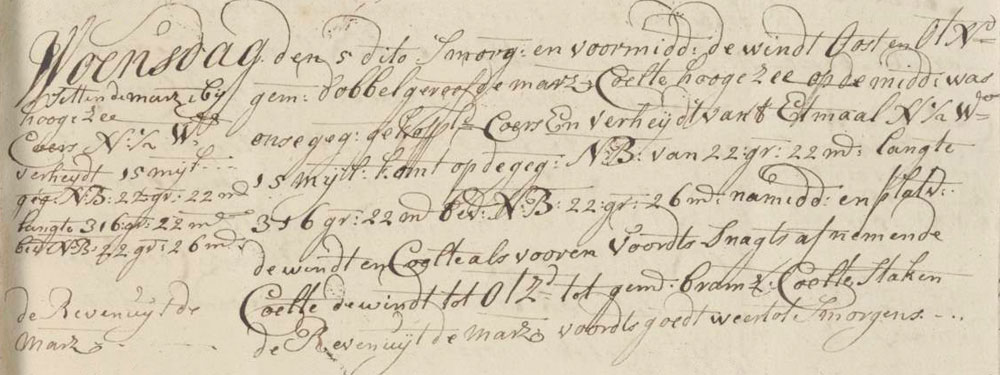 Woensdag den 5 dito Smorg: en voormidd: de windt Oost en Ot No
gem: dobbel gereefde marz: Coelte hooge Zee op de midd: was
onse geg: gekopp: Coers En verheydt van't Etmaal N ½ Wo
15 myll: komt op de geg: N:B: van 22:gr: 22 md: langte
316 gr: 22 md bed: N:B: 22:gr: 26 md: namidd: en platv:
de windt en Coelte als vooren Voordts Snagts afnemende
Coelte de windt tot O t Zd tot gemd: bramz: Coelte staken
de Revenuijt de Marz voordts goedt weer tot Smorgens - - -
Setten de marz: by
hooge Zee
Coers N: ½ W
verheydt 15 myl - -
geg: N:B: 22:gr: 22 md
langte 316:gr: 22 md
bed: N:B: 22 gr: 26 md
de Revenuyt de
Marz